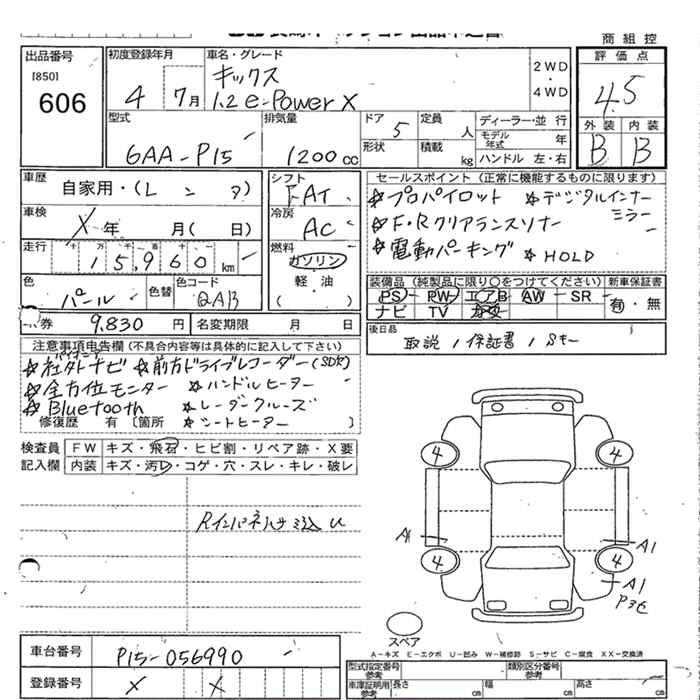 商組控
出品番号 [850] 606
初度登録年月 4 7月
車名・グレード キックス 1.2 e-Power X
2WD・4WD
評価点 4.5
外装 内装
B B
型式 6AA-P15
排気量 1200cc
ドア 5
形状
定員 人
積載 kg
ディーラー・並行
モデル年式 年
ハンドル 左・右
車歴 自家用・(レンタ)
車検 X年 月( 日)
走行 十万千百十一
15,960km
色 パール 色替 色コード QAB
シフト FAT
冷房 AC
燃料 ガソリン
軽・油
( )
セールスポイント(正常に機能するものに限ります)
☆プロパイロット ☆デジタルインナーミラー
☆F・Rクリアランスソナー
☆電動パーキング ☆HOLD
装備品(純製品に限り○をつけてください) 新車保証書
PS PW エアB AW SR
ナビ TV 有・無
券 9,830円 名変期限 月 日
後日品 取説/保証書/Sキー
注意事項申告欄(不具合内容等は具体的に記入して下さい)
パイオニア
☆社外ナビ ☆前方ドライブレコーダー(SD欠)
☆全方位モニター ☆ハンドルヒーター
☆Bluetooth ☆レーダークルーズ
修復歴 有 〔箇所 ☆シートヒーター 〕
検査員 FW キズ・飛石・ヒビ割・リペア跡・X要
記入欄 内装 キズ・汚レ・コゲ・穴・スレ・キレ・破レ
4 4
A1 A1
4 4
A1
P36
スペア
A-キズ E-エクボ U-凹み W-補修跡 S-サビ C-腐食 XX-交換済
車台番号 P15-056990
登録番号 X X
型式指定番号 参考 類別区分番号 参考
車庫証明用 参考 長さ cm 幅 cm 高さ cm